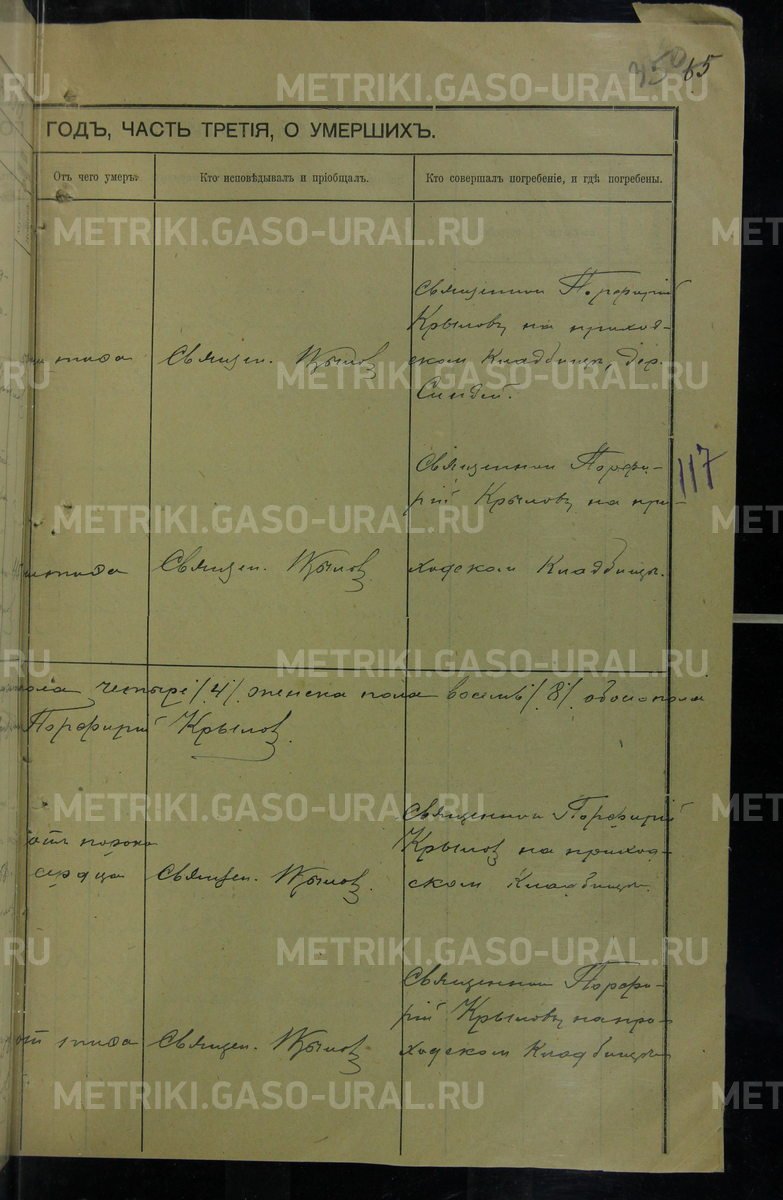 65
ГОДЪ, ЧАСТЬ ТРЕТІЯ, О УМЕРШИХЪ.
Отъ чего умеръ.
Кто исповѣдывалъ и пріобщалъ.
Кто совершалъ погребеніе, и гдѣ погребены.
тифа
Священ. Крылов
Священник Порфирій
Крыловъ на приход-
ском Кладбищѣ, дер.
117
Священ. Крылов
Священник Порфи-
рій Крыловъ на при-
ходском Кладбищѣ.
пола четыре /4/ женска пола восемь /8/ обоего пола
Порфирій Крылов.
отъ порока
сердца
Священ. Крылов.
Священник Порфирій
Крылов на приход-
ском Кладбищѣ.
от тифа
Священ. Крылов
Священник Порфи-
рій Крыловъ на при-
ходском Кладбищѣ
METRIKI.GASO-URAL.RU